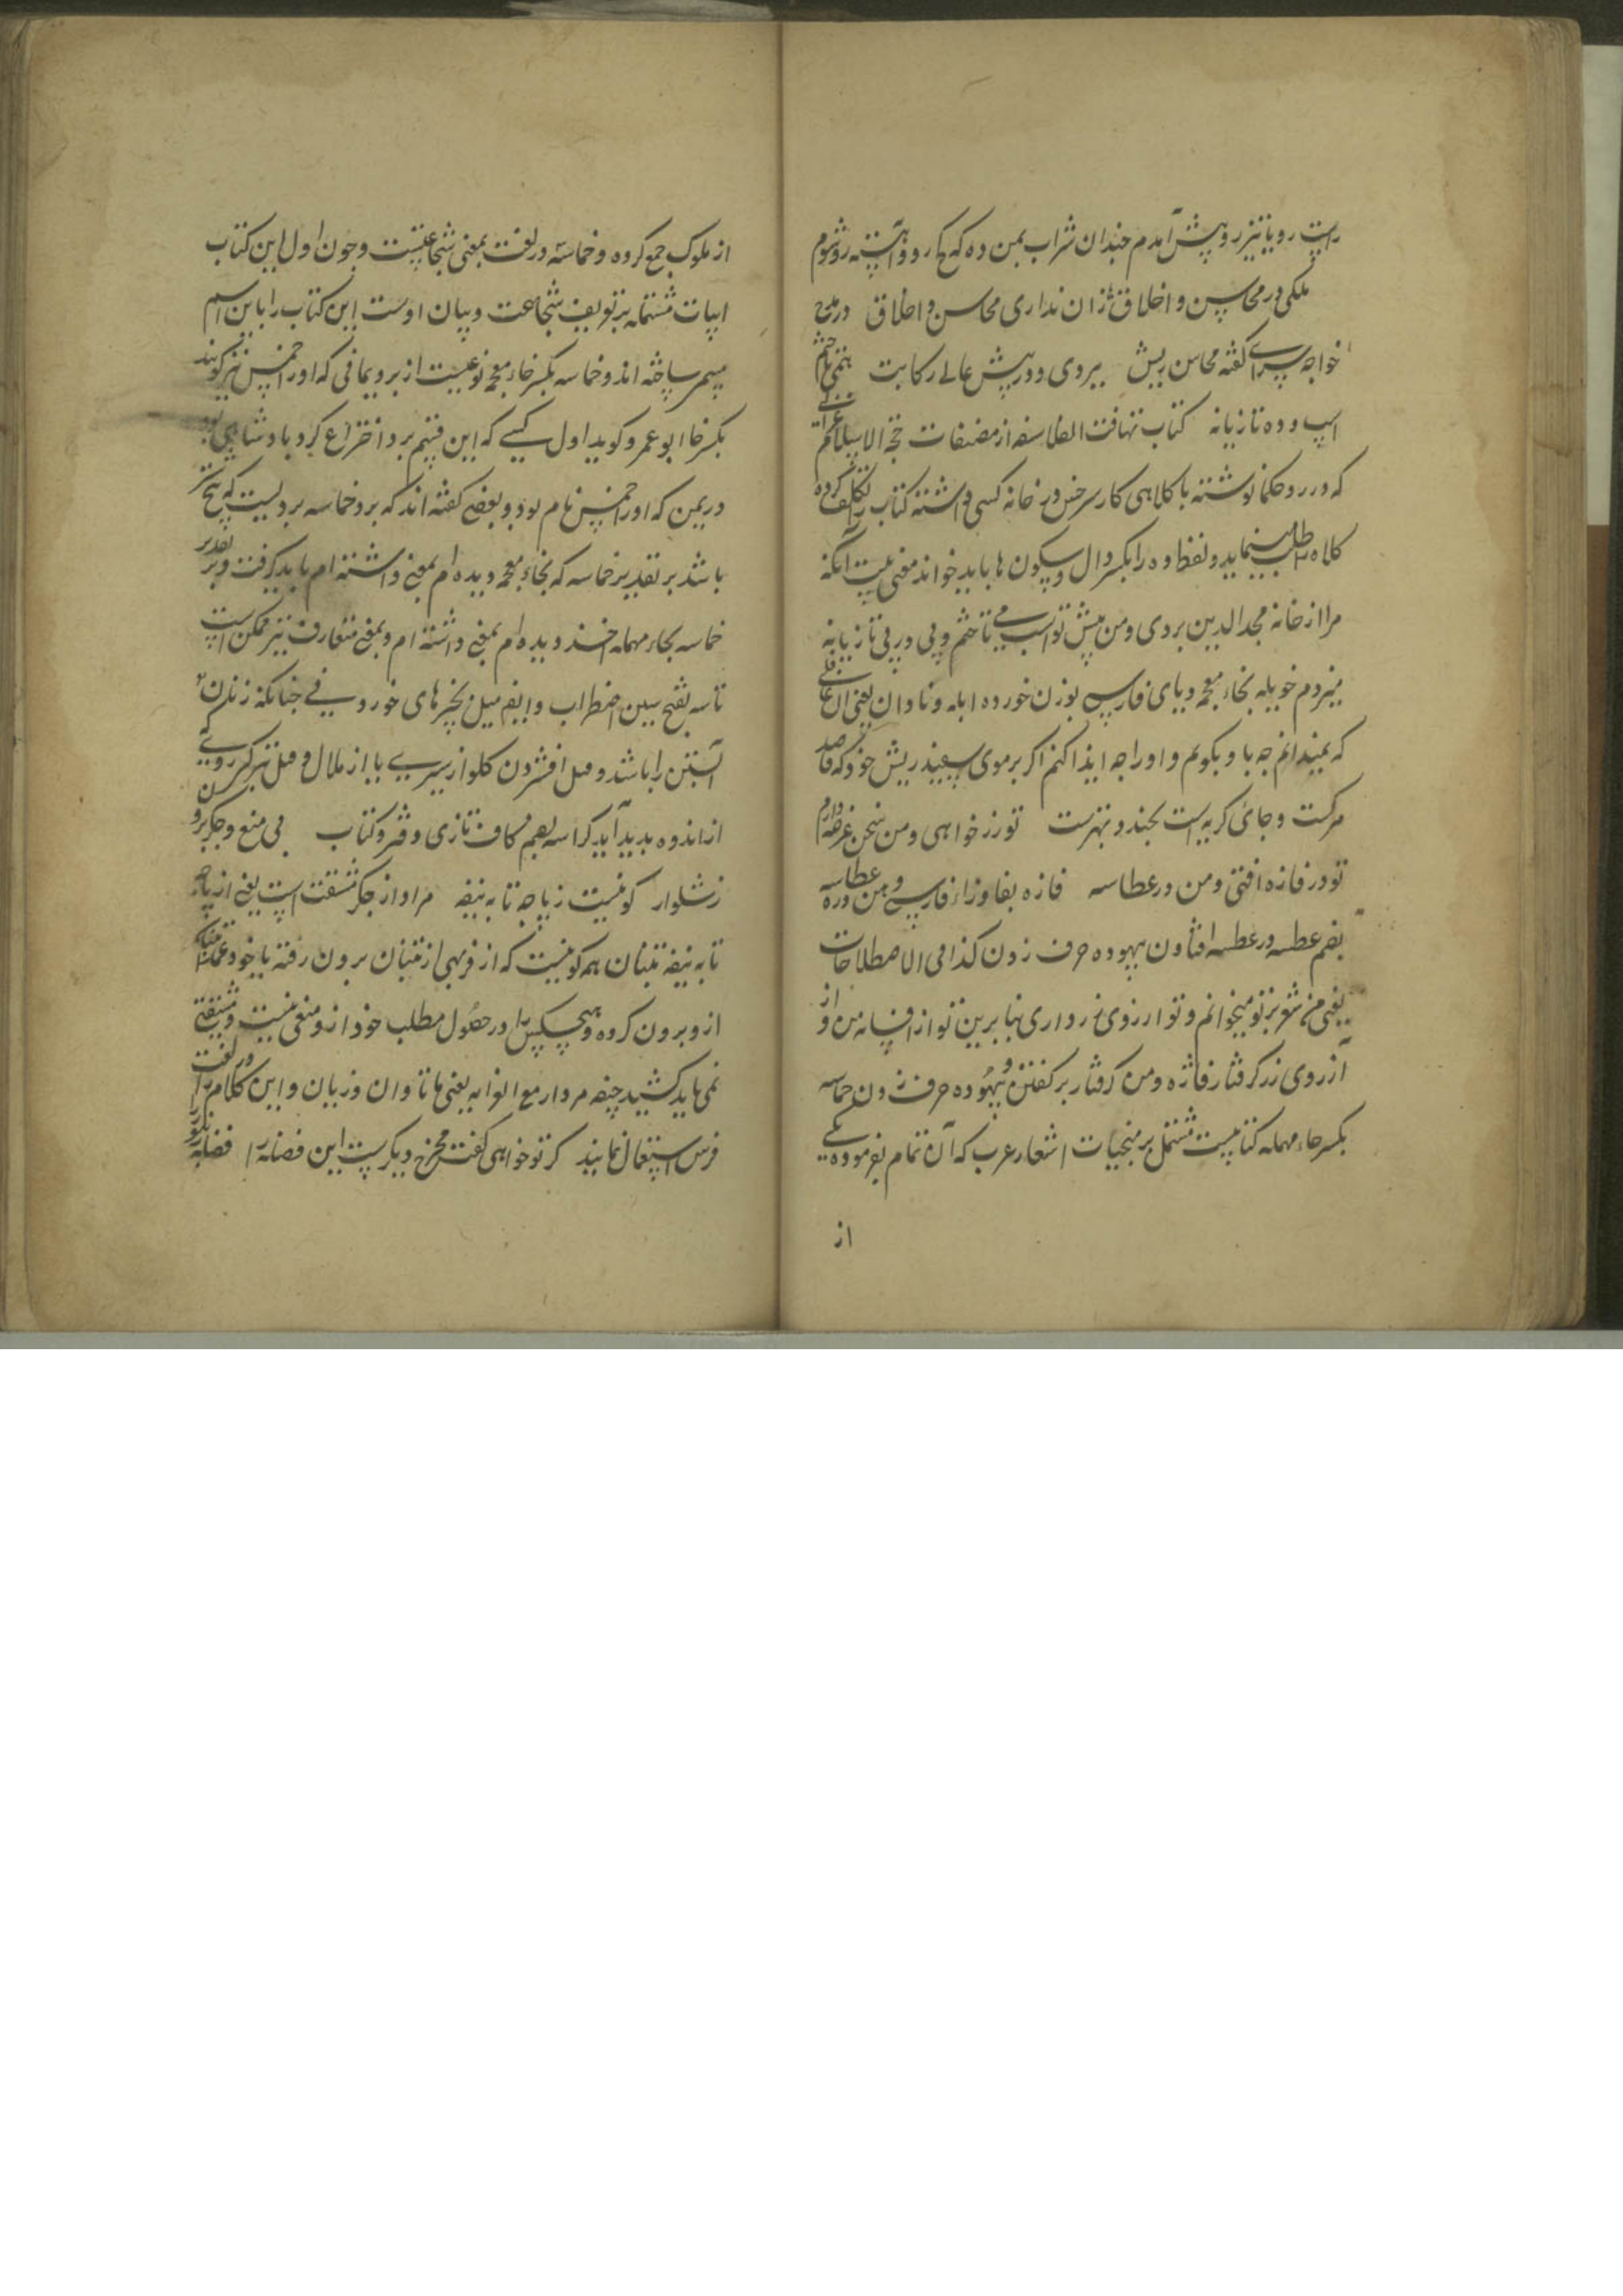 راست رو یا تیز رو پیش آمدم چندان شراب بمن ده که کج رو و آهسته رو شوم
ملکی در محاسن و اخلاق زان نداری محاسن و اخلاق در مدح
خواجه سرای گفته محاسن ریش ببردی و در پیش عالی رکابت
اسپ و ده تازیانه کتاب تهافت الفلاسفه از مصنفات حجة الاسلام
که در رد حکما نوشته با کلاهی کار سرخس در خانه کسی داشته کتاب را تکلف کرده
کلاه را طلب مینماید و لفظ ده را بکسر دال و سکون ها باید خواند معنی بیت آنکه
مرا از خانه مجد الدین بردی و من پیش تو اسب می تاختم و پی در پی تازیانه
میزدم خویله بخاء معجمه و یای فارسی بوزن خورده ابله و نادان یعنی آن
که نمیدانم چه با و بکویم و او را چه ایذا کنم اکر بر موی سپید ریش خود که قاصد
مرکست و جای کریه است بخندد بهترست تو زر خواهی و من سخن عرضه دارم
تو در فازه افتی و من در عطاسه فازه بفا و زاء فارسی دهن دره و عطاسه
بضم عطسه و در عطسه افتادن بیهوده حرف زدن کذا فی الاصطلاحات
یعنی من شعر بر تو میخوانم و تو ارزوی زر داری بنا برین تو از افسانه من و از
آرزوی زر کرفتار فاژه و من کرفتار بر کفتن و بیهوده حرف زدن حماسه
بکسر حاء مهمله کتابیست مشتمل بر منتخبات اشعار عرب که آن تمام بفرموده یکی
از
از ملوک جمع کرده و حماسه در لغت بمعنی شجاعتست و چون اول این کتاب
ابیات مشتمله بر تعریف شجاعت و بیان اوست این کتاب را باین اسم
مسمی ساخته اند و خماسه بکسر خاء معجمه نوعیست از برد یمانی که او را خمس نیز کویند
بکسر خا ابو عمرو کوید اول کسی که این قسم برد اختراع کرد پادشاهی بود
در یمن که او را خمس نام بود و بعضی کفته اند که برد خماسه بردیست که پنج
باشد بر تقدیر خماسه که بخاء معجمه دیده ام بمعنی داشته ام باید کرفت و بر تقدیر
حماسه بحاء مهمله خوانند دیده ام بمعنی داشته ام و بمعنی متعارف نیز ممکن است
تاسه بفتح سین اضطراب و ایضا میل بچیزهای خوردنی چنانکه زنان
آبستن را باشد و میل افشردن کلو از سیری یا از ملال و میل نیز
از اندوه پدید آید کراسه بضم کاف تازی دفتر و کتاب بی منع و جکر برو
ز شلوار کونیست ز پاچه تا به نیفه مراد از جکر مشقت است یعنی از پاچه
تا به نیفه تنبان همه کونیست که از فربهی از تنبان برون رفته یا خود عمدا
از و برون کرده و هیچکس را در حصول مطلب خود از و منعی نیست و مشقتی
نمی باید کشید جیفه مردار مع القرابه یعنی با تاوان و زیان و این کلام را در لغت
فرس استعمال نمایند کر تو خواهی کفت مخرج دیکرست این فضله را فضله